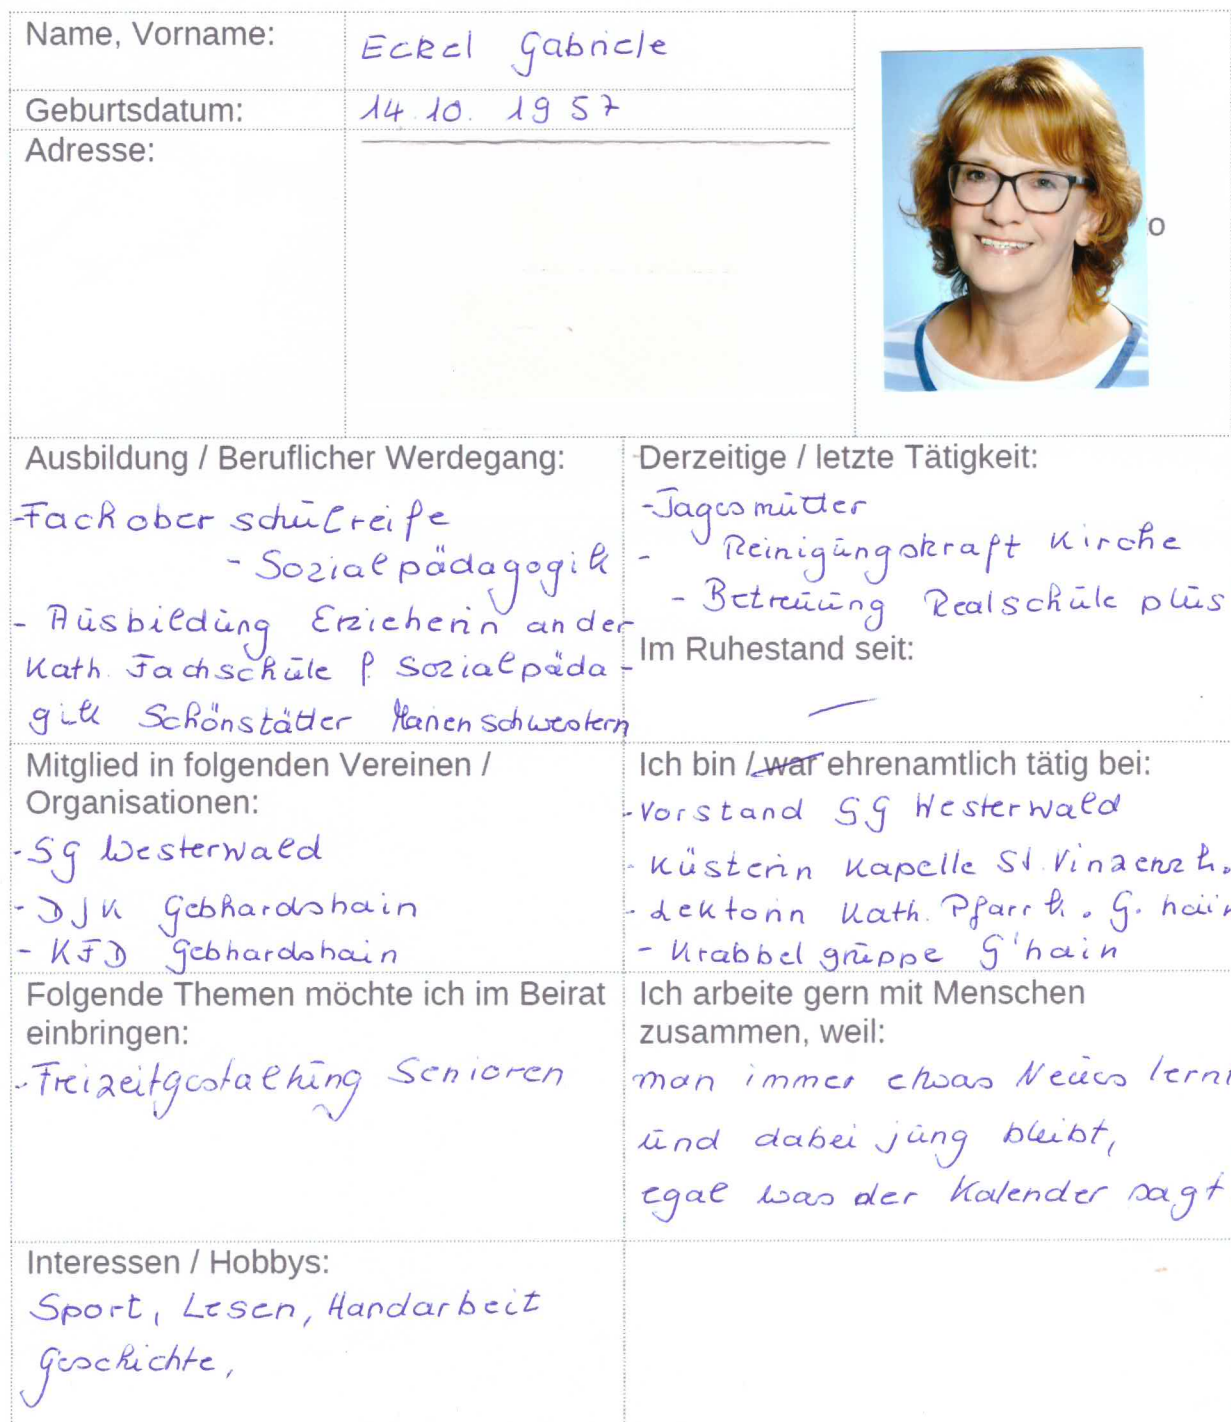 Name, Vorname:
Eckel Gabriele
Geburtsdatum:
14.10. 1957
Adresse:
o
Ausbildung / Beruflicher Werdegang:
-Fachoberschulreife
- Sozialpädagogik
- Ausbildung Erzieherin an der
Kath. Fachschule f. Sozialpäda-
gik Schönstätter Marienschwestern
Derzeitige / letzte Tätigkeit:
-Tagesmutter
- Reinigungskraft Kirche
- Betreuung Realschule plus
Im Ruhestand seit:
—
Mitglied in folgenden Vereinen /
Organisationen:
-SG Westerwald
- DJK Gebhardshain
- KFD Gebhardshain
Ich bin / war ehrenamtlich tätig bei:
-Vorstand SG Westerwald
- Küsterin Kapelle St. Vinzenz h.
- Lektorin Kath. Pfarrk. G. hain
- Krabbelgruppe G'hain
Folgende Themen möchte ich im Beirat
einbringen:
-Freizeitgestaltung Senioren
Ich arbeite gern mit Menschen
zusammen, weil:
man immer etwas Neues lernt
und dabei jung bleibt,
egal was der Kalender sagt
Interessen / Hobbys:
Sport, Lesen, Handarbeit
Geschichte,